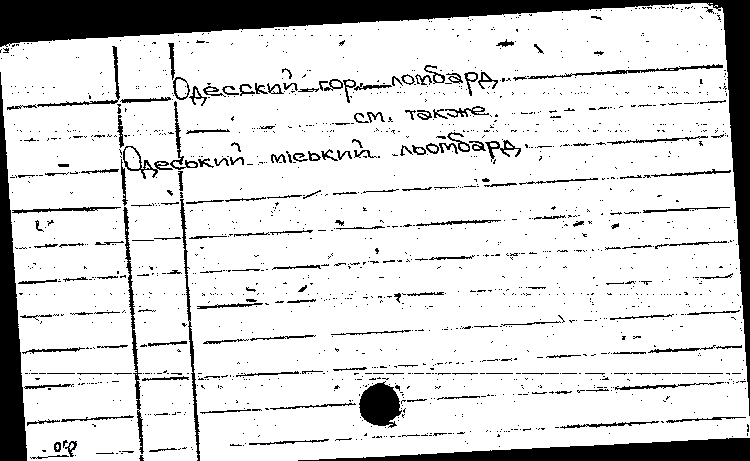 Одесский гор. ломбард,
см. также
Одеський міський льомбард,